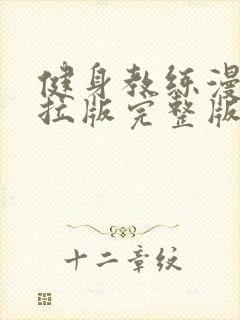 健身教练漫
拉版完整版
十二章纹